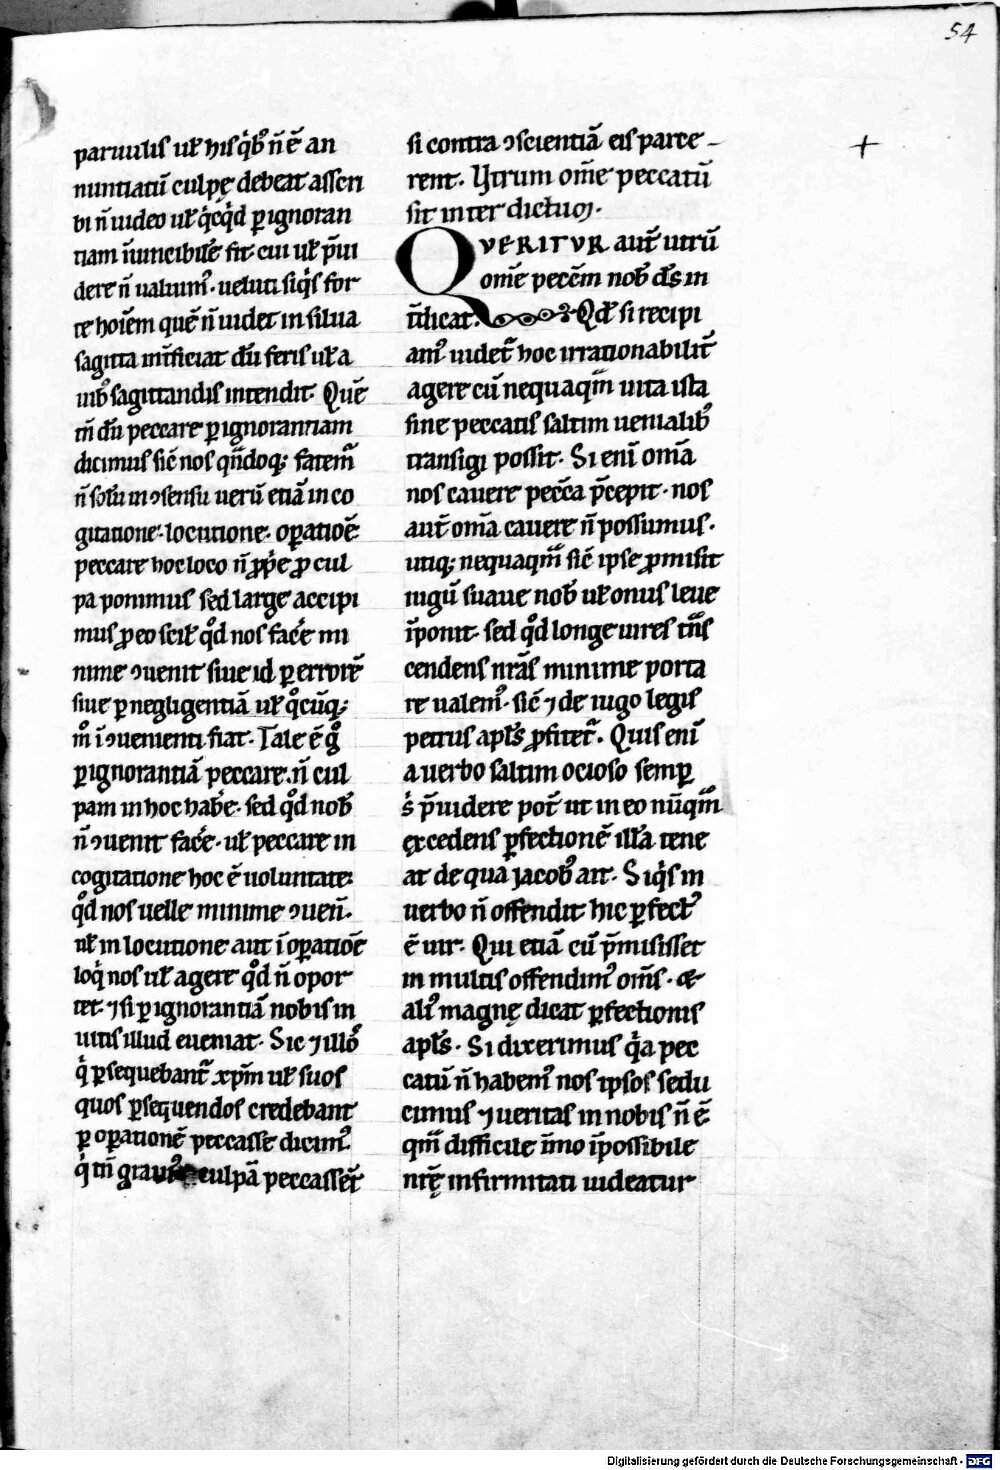 54
paruulis ul̅ his q̇b᷒ n̅ e̅ an
nuntiatu̅ culpę debeat asscri
bi n̅ uideo ul̅ q̇cq̇d p̱ ignoran
tiam n̅uincibile̅ fit· cui ul̅ p̅ui
dere n̅ ualuim᷒· ueluti siq̇s for
te hoie̅m que̅ n̅ uidet in silua
sagitta int̅ficiat du̅ feris ul̅ a
uib᷒ sagittandis intendit· Que̅
tn̅ du̅ peccare p̱ ignorantiam
dicimus sic̅ nos qn̅doq; fatem᷑
n̅ solu̅ in ɔsensu ueru̅ etia̅ in co
gitatione· locutione· op̱atioe̅·
peccare hoc loco n̅ ꝓp̅e ꝓ cul
pa ponimus sed large accipi
mus ꝓ eo scil̅ qͦd nos fac̅e mi
nime ɔuenit siue id p̱ errore̅
siue p̱ negligentia̅ ul̅ qͦcu̅q;
mͦ i̅ɔuenienti fiat· Tale e̅ gͦ
p̱ ignorantia̅ peccare· n̅ cul
pam in hoc hab̅e· sed qͦd nob̅
n̅ ɔuenit fac̅e· ul̅ peccare in
cogitatione hoc e̅ uoluntate·
qͦd nos uelle minime ɔuen̅·
ul̅ in locutione aut i̅ op̱atioe̅
loq̇ nos ul̅ agere qͦd n̅ opor
tet· ⁊ si p̱ ignorantia̅ nobis in
uitis illud eueniat· Sic ⁊ illos
q̇ p̱sequebant᷑ xp̅m ul̅ suos
quos p̱sequendos credebant
p̱ op̱atione̅ peccasse dicim᷒
q̇ tn̅ grauius culpa̅ peccasse̅t
si contra ɔscientia̅ eis parce
rent· Utrum om̅e peccatu̅
sit inter dictum·
QVERITVR aut̅ utru̅
om̅e pecc̅m nob̅ ds̅ in
t̅dicat· Qd̅ si recipi
am᷒ uidet᷑ hoc irrationabilit̅
agere cu̅ nequaqm̅ uita ista
sine peccatis saltim uenialib᷒
transigi possit· Si eni̅ oma̅
nos cauere pecc̅a p̅cepit· nos
aut̅ oma̅ cauere n̅ possumus·
utiq; nequaqm̅ sic̅ ipse ꝓmisit
iugu̅ suaue nob̅ ul̅ onus leue
i̅ponit· sed qͦd longe uires tn̅s
cendens nr̅as minime porta
re ualem᷒· sic̅ ⁊ de iugo legis
petrus apl̅s ꝓfitet᷑· Quis eni̅
a uerbo saltim ocioso semp̱
ṡ p̅uidere pot̅ ut in eo nu̅qm̅
excedens p̱fectione̅ illa̅ tene
at de qua jacob᷒ ait· Siq̇s in
uerbo n̅ offendit hic p̱fect᷒
e̅ uir· Qui etia̅ cu̅ p̅misisset
in multis offendim᷒ om̅s· &
ali᷒ magnę dicat p̱fectionis
apl̅s· Si dixerimus q̇a pec
catu̅ n̅ habem᷒ nos ipsos sedu
cimus ⁊ ueritas in nobis n̅ e̅·
qm̅ difficile i̅mo i̅possibile
nr̅ę infirmitati uideatur
Digitalisierung gefördert durch die Deutsche Forschungsgemeinschaft - DFG